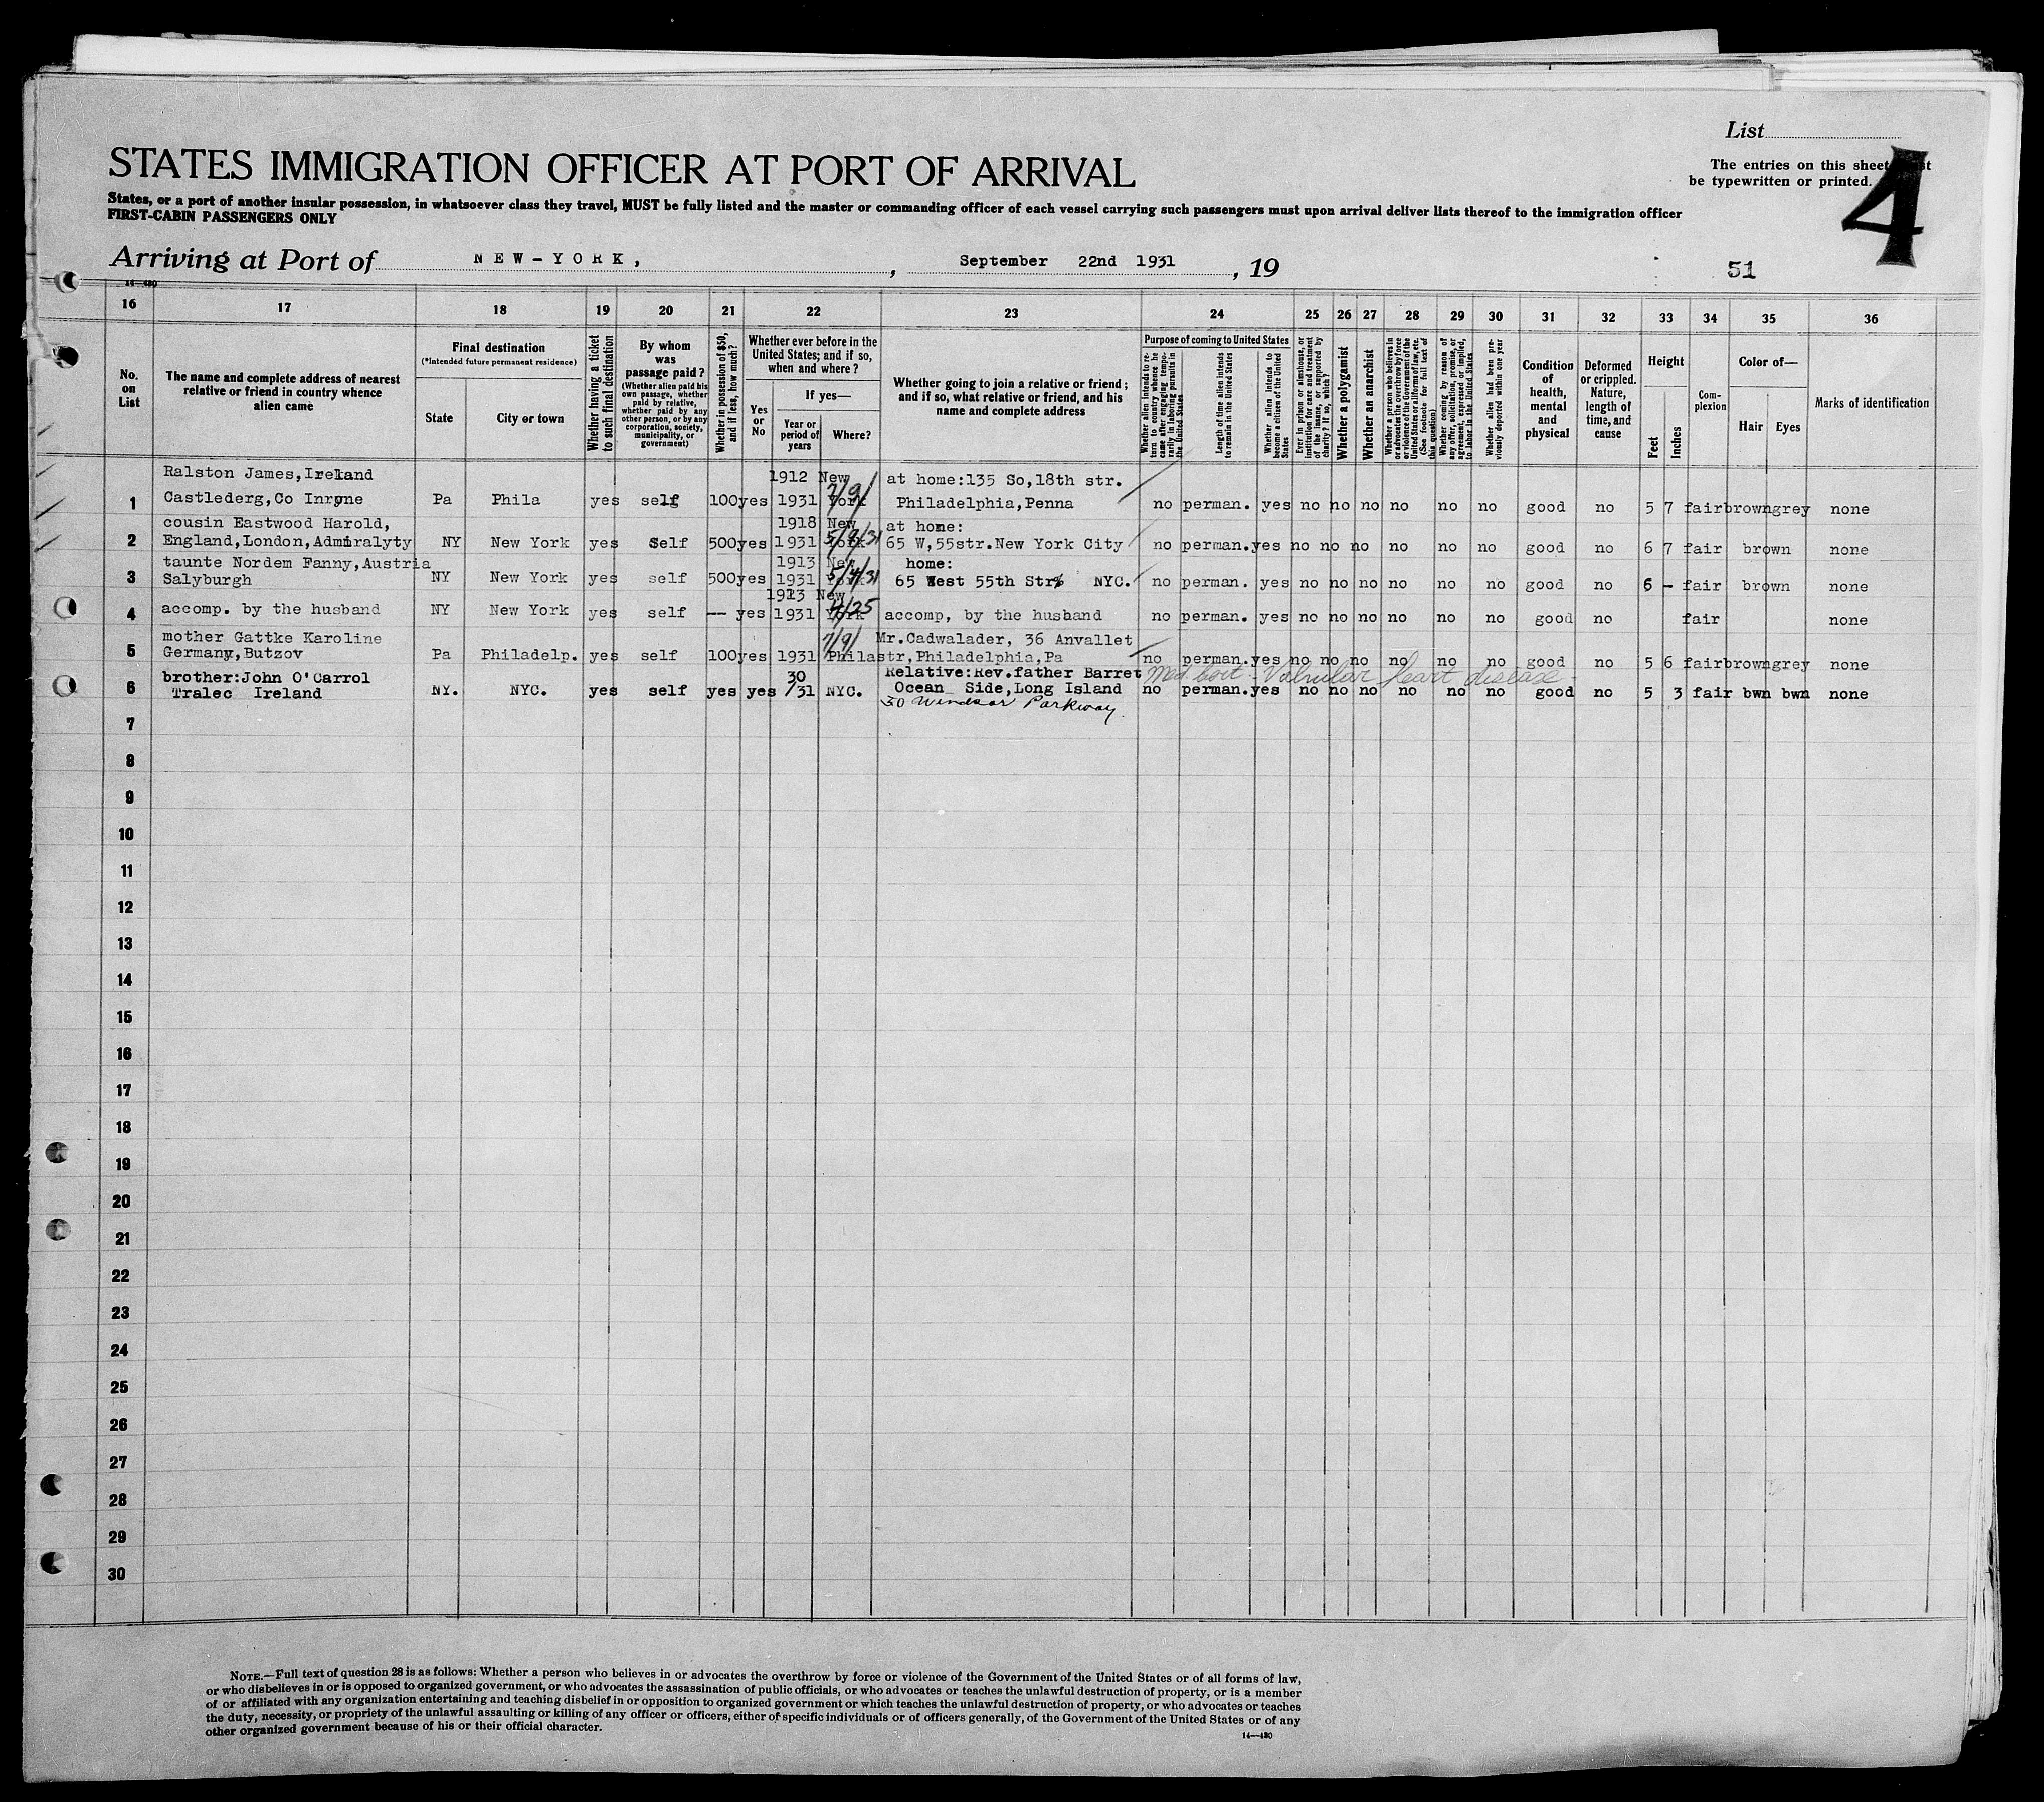 List
STATES IMMIGRATION OFFICER AT PORT OF ARRIVAL
The entries on this sheet
be typewritten or printed.
4
States, or a port of another insular possession, in whatsoever class they travel, MUST be fully listed and the master or commanding officer of each vessel carrying such passengers must upon arrival deliver lists thereof to the immigration officer
FIRST-CABIN PASSENGERS ONLY
Arriving at Port of NEW-YORK, , September 22nd 1931 , 19
51
14—430
16 17 18 19 20 21 22 23 24 25 26 27 28 29 30 31 32 33 34 35 36
No. on List
The name and complete address of nearest relative or friend in country whence alien came
Final destination
(*Intended future permanent residence)
State
City or town
Whether having a ticket to such final destination
By whom was passage paid?
(Whether alien paid his own passage, whether paid by relative, whether paid by any other person, or by any corporation, society, municipality, or government)
Whether in possession of $50, and if less, how much?
Whether ever before in the United States; and if so, when and where?
Yes or No
If yes—
Year or period of years
Where?
Whether going to join a relative or friend; and if so, what relative or friend, and his name and complete address
Purpose of coming to United States
Whether alien intends to return to country whence he came after engaging temporarily in laboring pursuits in the United States
Length of time alien intends to remain in the United States
Whether alien intends to become a citizen of the United States
Ever in prison or almshouse, or institution for care and treatment of the insane, or supported by charity? If so, which?
Whether a polygamist
Whether an anarchist
Whether a person who believes in or advocates the overthrow by force or violence of the Government of the United States or all forms of law, etc. (See footnote for full text of this question)
Whether coming by reason of any offer, solicitation, promise, or agreement, expressed or implied, to labor in the United States
Whether alien had been previously deported within one year
Condition of health, mental and physical
Deformed or crippled. Nature, length of time, and cause
Height
Feet
Inches
Complexion
Color of—
Hair
Eyes
Marks of identification
Ralston James,Ireland 1912 New at home:135 So,18th str.
1 Castlederg,Co Pa Phila yes self 100 yes 1931 York 7/9/ Philadelphia,Penna no perman. yes no no no no no no good no 5 7 fair brown grey none
cousin Eastwood Harold, 1918 New at home:
2 England,London,Admiralyty NY New York yes Self 500 yes 1931 York 65 W,55str.New York City no perman. yes no no no no no no good no 6 7 fair brown none
taunte Nordem Fanny,Austria 1913 New home:
3 Salyburgh NY New York yes self 500 yes 1931 York 5/4/31 65 West 55th Str NYC. no perman. yes no no no no no no good no 6 - fair brown none
New
4 accomp. by the husband NY New York yes self -- yes 1931 York accomp, by the husband no perman. yes no no no no no no good no fair none
mother Gattke Karoline 7/9/ Mr.Cadwalader, 36 Anvallet
5 Germany,Butzov Pa Philadelp. yes self 100 yes 1931 Phila str,Philadelphia,Pa no perman. yes no no no no no no good no 5 6 fair brown grey none
brother:John O'Carrol 30 Relative:Rev.father Barret Med. Cert - Valvular heart disease -
6 Tralec Ireland NY. NYC. yes self yes yes /31 NYC. Ocean Side,Long Island no perman. yes no no no no no no good no 5 3 fair bwn bwn none
30 Windsor Parkway.
7
8
9
10
11
12
13
14
15
16
17
18
19
20
21
22
23
24
25
26
27
28
29
30
NOTE.—Full text of question 28 is as follows: Whether a person who believes in or advocates the overthrow by force or violence of the Government of the United States or of all forms of law,
or who disbelieves in or is opposed to organized government, or who advocates the assassination of public officials, or who advocates or teaches the unlawful destruction of property, or is a member
of or affiliated with any organization entertaining and teaching disbelief in or opposition to organized government or which teaches the unlawful destruction of property, or who advocates or teaches
the duty, necessity, or propriety of the unlawful assaulting or killing of any officer or officers, either of specific individuals or of officers generally, of the Government of the United States or of any
other organized government because of his or their official character.
14—430